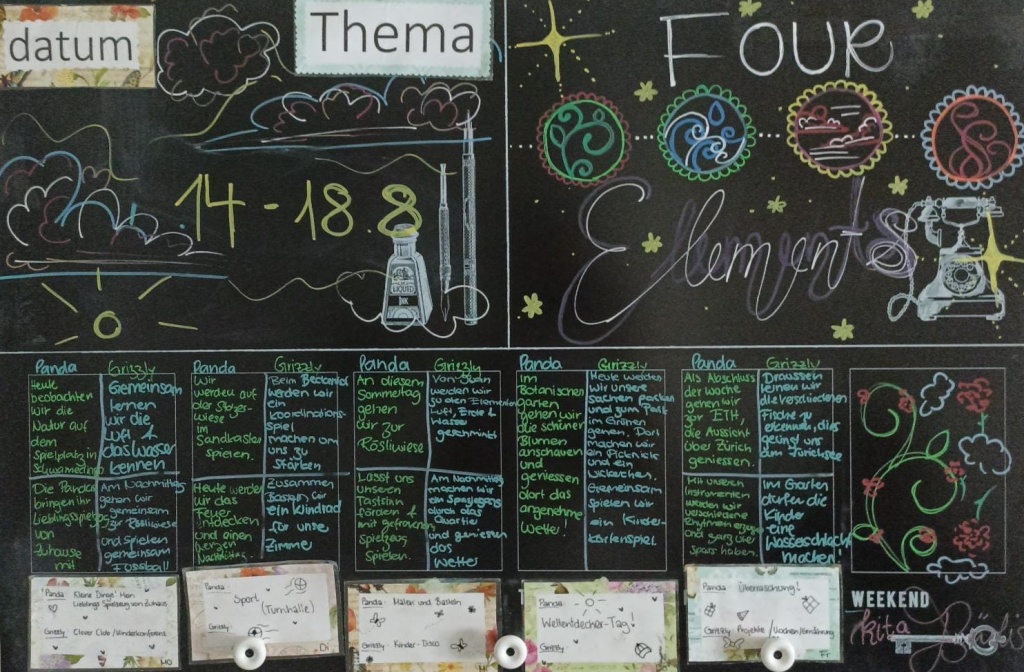 datum
Thema
14 - 18 8
LIQUID
INK
FOUR
Elements
Panda
Grizzly
Heute
beobachten
wir die
Natur auf
dem
Spielplatz in
Gemeinsam
lernen
wir die
Luft &
das Wasser
kennen
Die Pandas
bringen ihr
Lieblingsspielzeug
von
Zuhause
mit
Am Nachmittag
gehen wir
gemeinsam
zur Rösliwiese
und spielen
gemeinsam
Fussball
Panda
Grizzly
Wir
werden auf
der
wiese
im
Sandkasten
spielen.
Beim
werden wir
ein
Koordinations-
spiel
machen um
uns zu
stärken
Heute werden
wir das
Feuer
entdecken
und einen
Nachmittag
Zusammen
basteln wir
ein Windrad
für unse
Zimme
Panda
Grizzly
An diesem
gehen
wir zur
Rösliwiese
werden wir
zu den Elementen
Luft, Erde &
Wasser
geschminkt
Lasst uns
unseren
Tastsinn
fördern &
mit gefrorenen
spielzeug
spielen.
Am Nachmittag
machen wir
ein Spaziergang
durch das
Quartier
und geniessen
das
Wetter
Panda
Grizzly
Im
Botanischen
Garten
gehen wir
die schönen
Blumen
anschauen
und
geniessen
dort das
angenehme
Wetter!
Heute werden
wir unsere
sachen packen
und zum Park
im Grünen
gehen. Dort
machen wir
ein Picknick
und ein
Gemeinsam
spielen wir
ein Kinder-
kartenspiel.
Panda
Grizzly
Als Abschluss
der Woche
gehen wir
zur ETH,
die Aussicht
über Zürich
geniessen.
Draussen
lernen wir
die verschiedenen
Fische zu
erkennen, dies
gelingt uns
am Zürichsee
Mit unseren
Instrumenten
werden wir
verschiedene
Rhythmen erzeugen
und ganz viel
Spass haben.
Im Garten
dürfen die
Kinder
eine
Wasserschlacht
machen!
Panda: Kleine Dinge' Mein
Lieblings Spielzeug von Zuhaus
Grizzly: Clever Club / Kinderkonferenz
MO
Panda:
Sport
(Turnhalle)
Grizzly:
Di
Panda: Malen und Basteln
Grizzly: Kinder-Disco
Mi
Panda:
Weltentdecher-Tag!
Grizzly:
Panda: Überraschung!
Grizzly: Projekte / Kochen/Ernährung
Fr
WEEKEND
kita